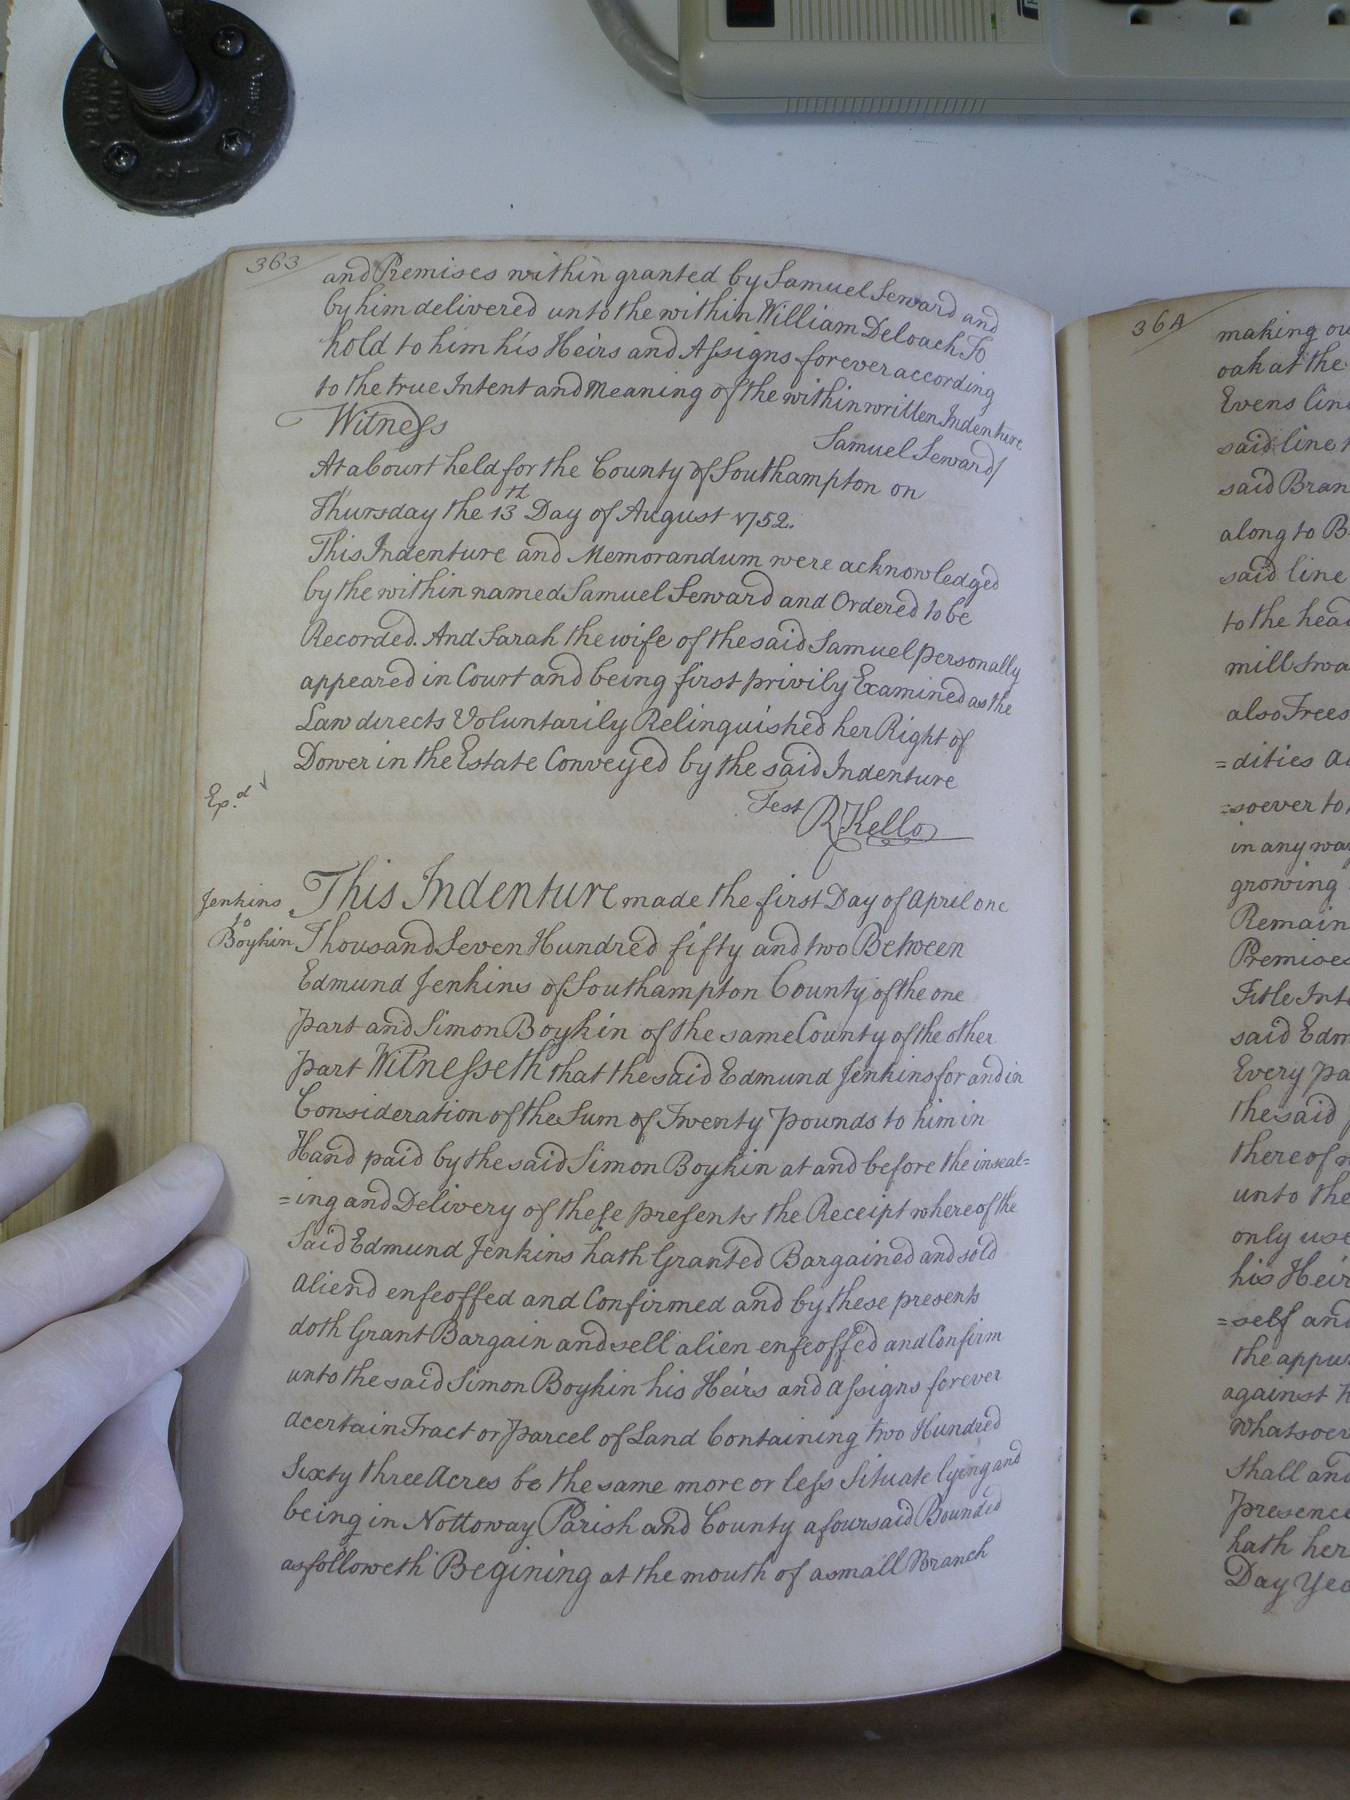 363
and Premises within granted by Samuel Seward and
by him delivered unto the within William Deloach To
hold to him his Heirs and Assigns forever according
to the true Intent and Meaning of the within written Indenture
Witness
Samuel Seward
At a Court held for the County of Southampton on
Thursday the 13th Day of August 1752.
This Indenture and Memorandum were acknowledged
by the within named Samuel Seward and Ordered to be
Recorded. And Sarah the wife of the said Samuel personally
appeared in Court and being first privily Examined as the
Law directs Voluntarily Relinquished her Right of
Dower in the Estate Conveyed by the said Indenture
Ex.d
Test R Kello
Jenkins
to
Boykin
This Indenture made the first Day of April one
Thousand Seven Hundred fifty and two Between
Edmund Jenkins of Southampton County of the one
part and Simon Boykin of the same County of the other
part Witnesseth that the said Edmund Jenkins for and in
Consideration of the Sum of Twenty pounds to him in
Hand paid by the said Simon Boykin at and before the inseal=
=ing and Delivery of these presents the Receipt whereof the
Said Edmund Jenkins hath Granted Bargained and sold
aliend enfeoffed and Confirmed and by these presents
doth Grant Bargain and sell alien enfeoffed and Confirm
unto the said Simon Boykin his Heirs and assigns forever
a certain Tract or Parcel of Land Containing two Hundred
Sixty three Acres be the same more or less Situate lying and
being in Nottoway Parish and County afoursaid Bounded
as followeth Begining at the mouth of a small Branch
364
making
oak at the
Evens line
said line
said Bran
along to B
said line
to the head
mill Swa
also Trees
=dities
=soever to
in any way
growing
Remain
Premises
Title Int
said Edm
Every pa
the said
thereof
unto the
only use
his Heir
=self and
the appur
against
Whatsoev
Shall and
Presence
hath her
Day Yea